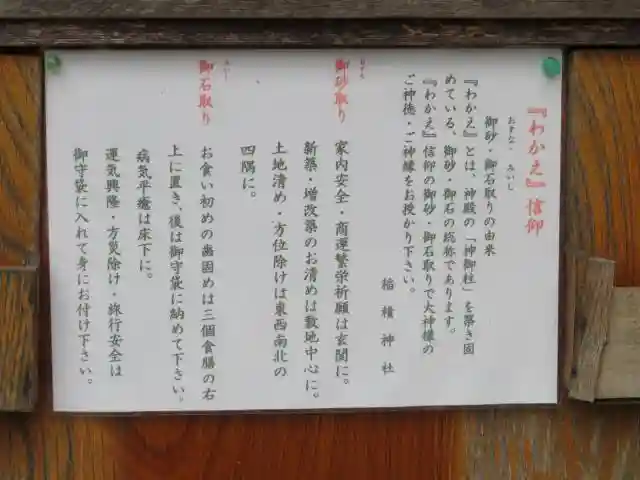 『わかえ』信仰
おすな・みいし
御砂・御石取りの由来
『わかえ』とは、神殿の「神御柱」を築き固
めている、御砂・御石の総称であります。
『わかえ』信仰の御砂・御石取りで大神様の
ご神徳・ご神縁をお授かり下さい。
稲積神社
御砂取り
家内安全・商運繁栄祈願は玄関に。
新築・増改築のお清めは敷地中心に。
土地清め・方位除けは東西南北の
四隅に。
御石取り
お食い初めの歯固めは三個食膳の右
上に置き、後は御守袋に納めて下さい。
病気平癒は床下に。
運気興隆・方災除け・旅行安全は
御守袋に入れて身にお付け下さい。